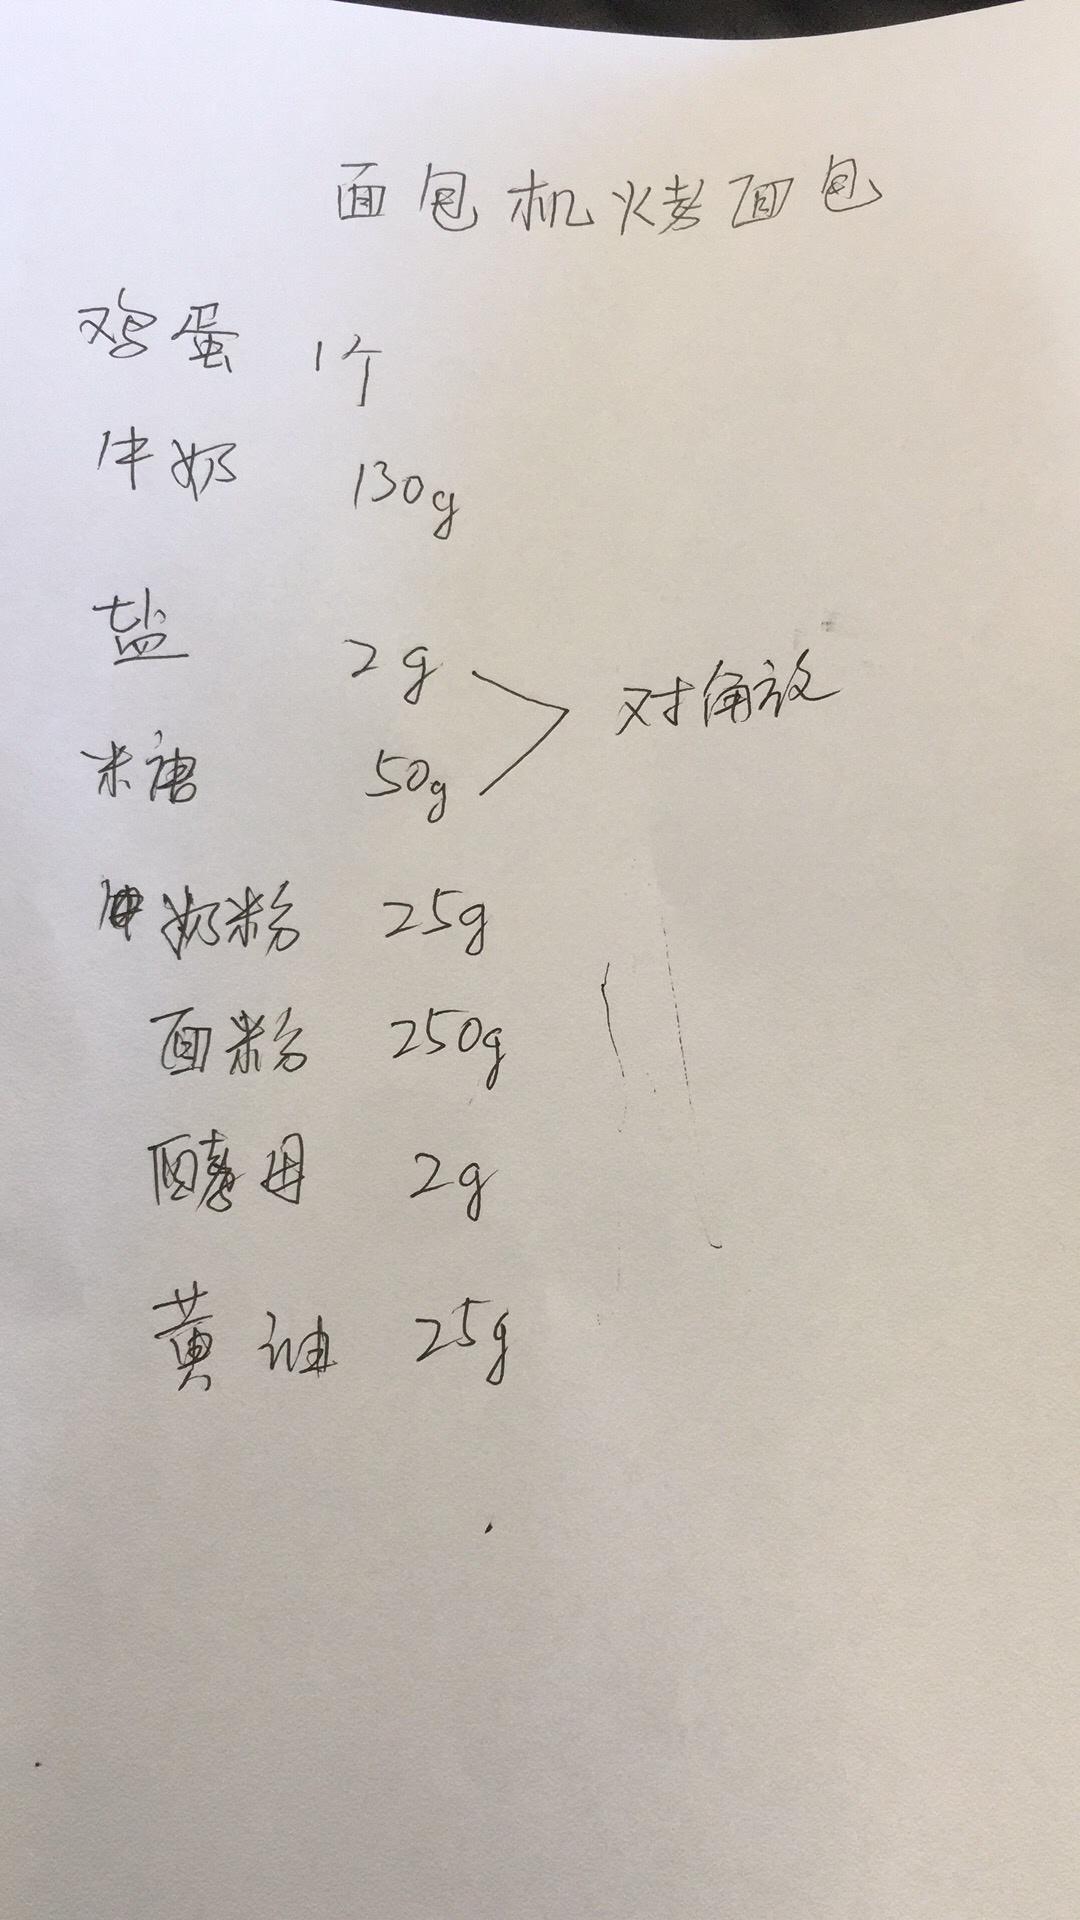 面包机烤面包
鸡蛋 1个
牛奶 130g
盐 2g
对角放
米糖 50g
奶粉 25g
面粉 250g
酵母 2g
黄油 25g